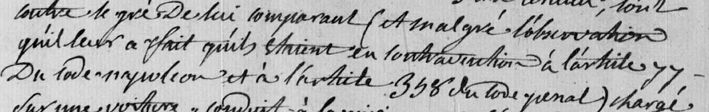 contre le gré de lui comparant (et malgré l'observation
qu'il leur a fait qu'ils étaient en contravention à l'artile 77
Du code napoleon et à l'artile 358 du code penal) chargé
sur une voiture conduit à